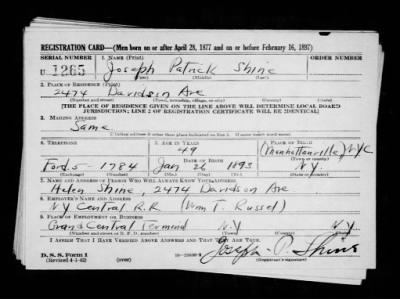 REGISTRATION CARD—(Men born on or after April 28, 1877 and on or before February 16, 1897)
SERIAL NUMBER 1. NAME (Print) ORDER NUMBER
U 1265 Joseph Patrick Shine
(First) (Middle) (Last)
2. PLACE OF RESIDENCE (Print)
2474 Davidson Ave
(Number and street) (Town, township, village, or city) (County) (State)
[THE PLACE OF RESIDENCE GIVEN ON THE LINE ABOVE WILL DETERMINE LOCAL BOARD
JURISDICTION; LINE 2 OF REGISTRATION CERTIFICATE WILL BE IDENTICAL]
3. MAILING ADDRESS
Same
4. TELEPHONE 5. AGE IN YEARS 6. PLACE OF BIRTH
49 NYC
DATE OF BIRTH
Ford 5 - 1784 Jan 26 1893 N.Y
(Exchange) (Number) (Mo.) (Day) (Yr.) (State or country)
7. NAME AND ADDRESS OF PERSON WHO WILL ALWAYS KNOW YOUR ADDRESS
Helen Shine, 2474 Davidson Ave
8. EMPLOYER'S NAME AND ADDRESS
N.Y Central R.R (Wm T. Russel)
9. PLACE OF EMPLOYMENT OR BUSINESS
Grand Central Terminal N.Y N.Y
(Number and street or R. F. D. number) (Town) (County) (State)
I AFFIRM THAT I HAVE VERIFIED ABOVE ANSWERS AND THAT THEY ARE TRUE.
D. S. S. Form 1
(Revised 4-1-42) Joseph P. Shine
(Registrant's signature)